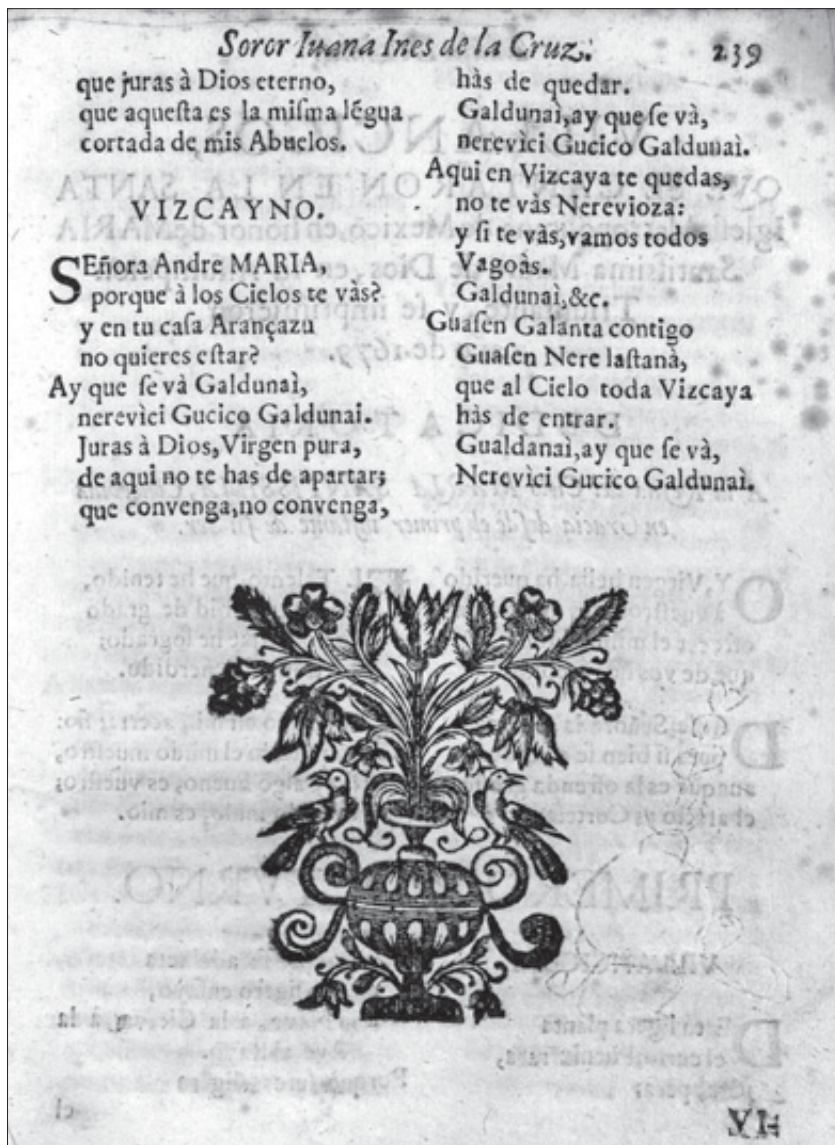 Soror Iuana Ines de la Cruz. 239
que juras à Dios eterno,
que aqueſta es la miſma légua
cortada de mis Abuelos.
VIZCAYNO.
SEñora Andre MARIA,
porque à los Cielos te vàs?
y en tu caſa Arançazu
no quieres eſtar?
Ay que ſe và Galdunaì,
nerevìci Gucico Galdunai.
Juras à Dios, Virgen pura,
de aqui no te has de apartar;
que convenga, no convenga,
hàs de quedar.
Galdunaì, ay que ſe và,
nerevici Gucico Galdunaì.
Aqui en Vizcaya te quedas,
no te vàs Nerevioza:
y ſi te vàs, vamos todos
Vagoàs.
Galdunaì, &c.
Guaſen Galanta contigo
Guaſen Nere laſtanà,
que al Cielo toda Vizcaya
hàs de entrar.
Gualdanai, ay que ſe và,
Nerevìci Gucico Galdunaì.
VI-